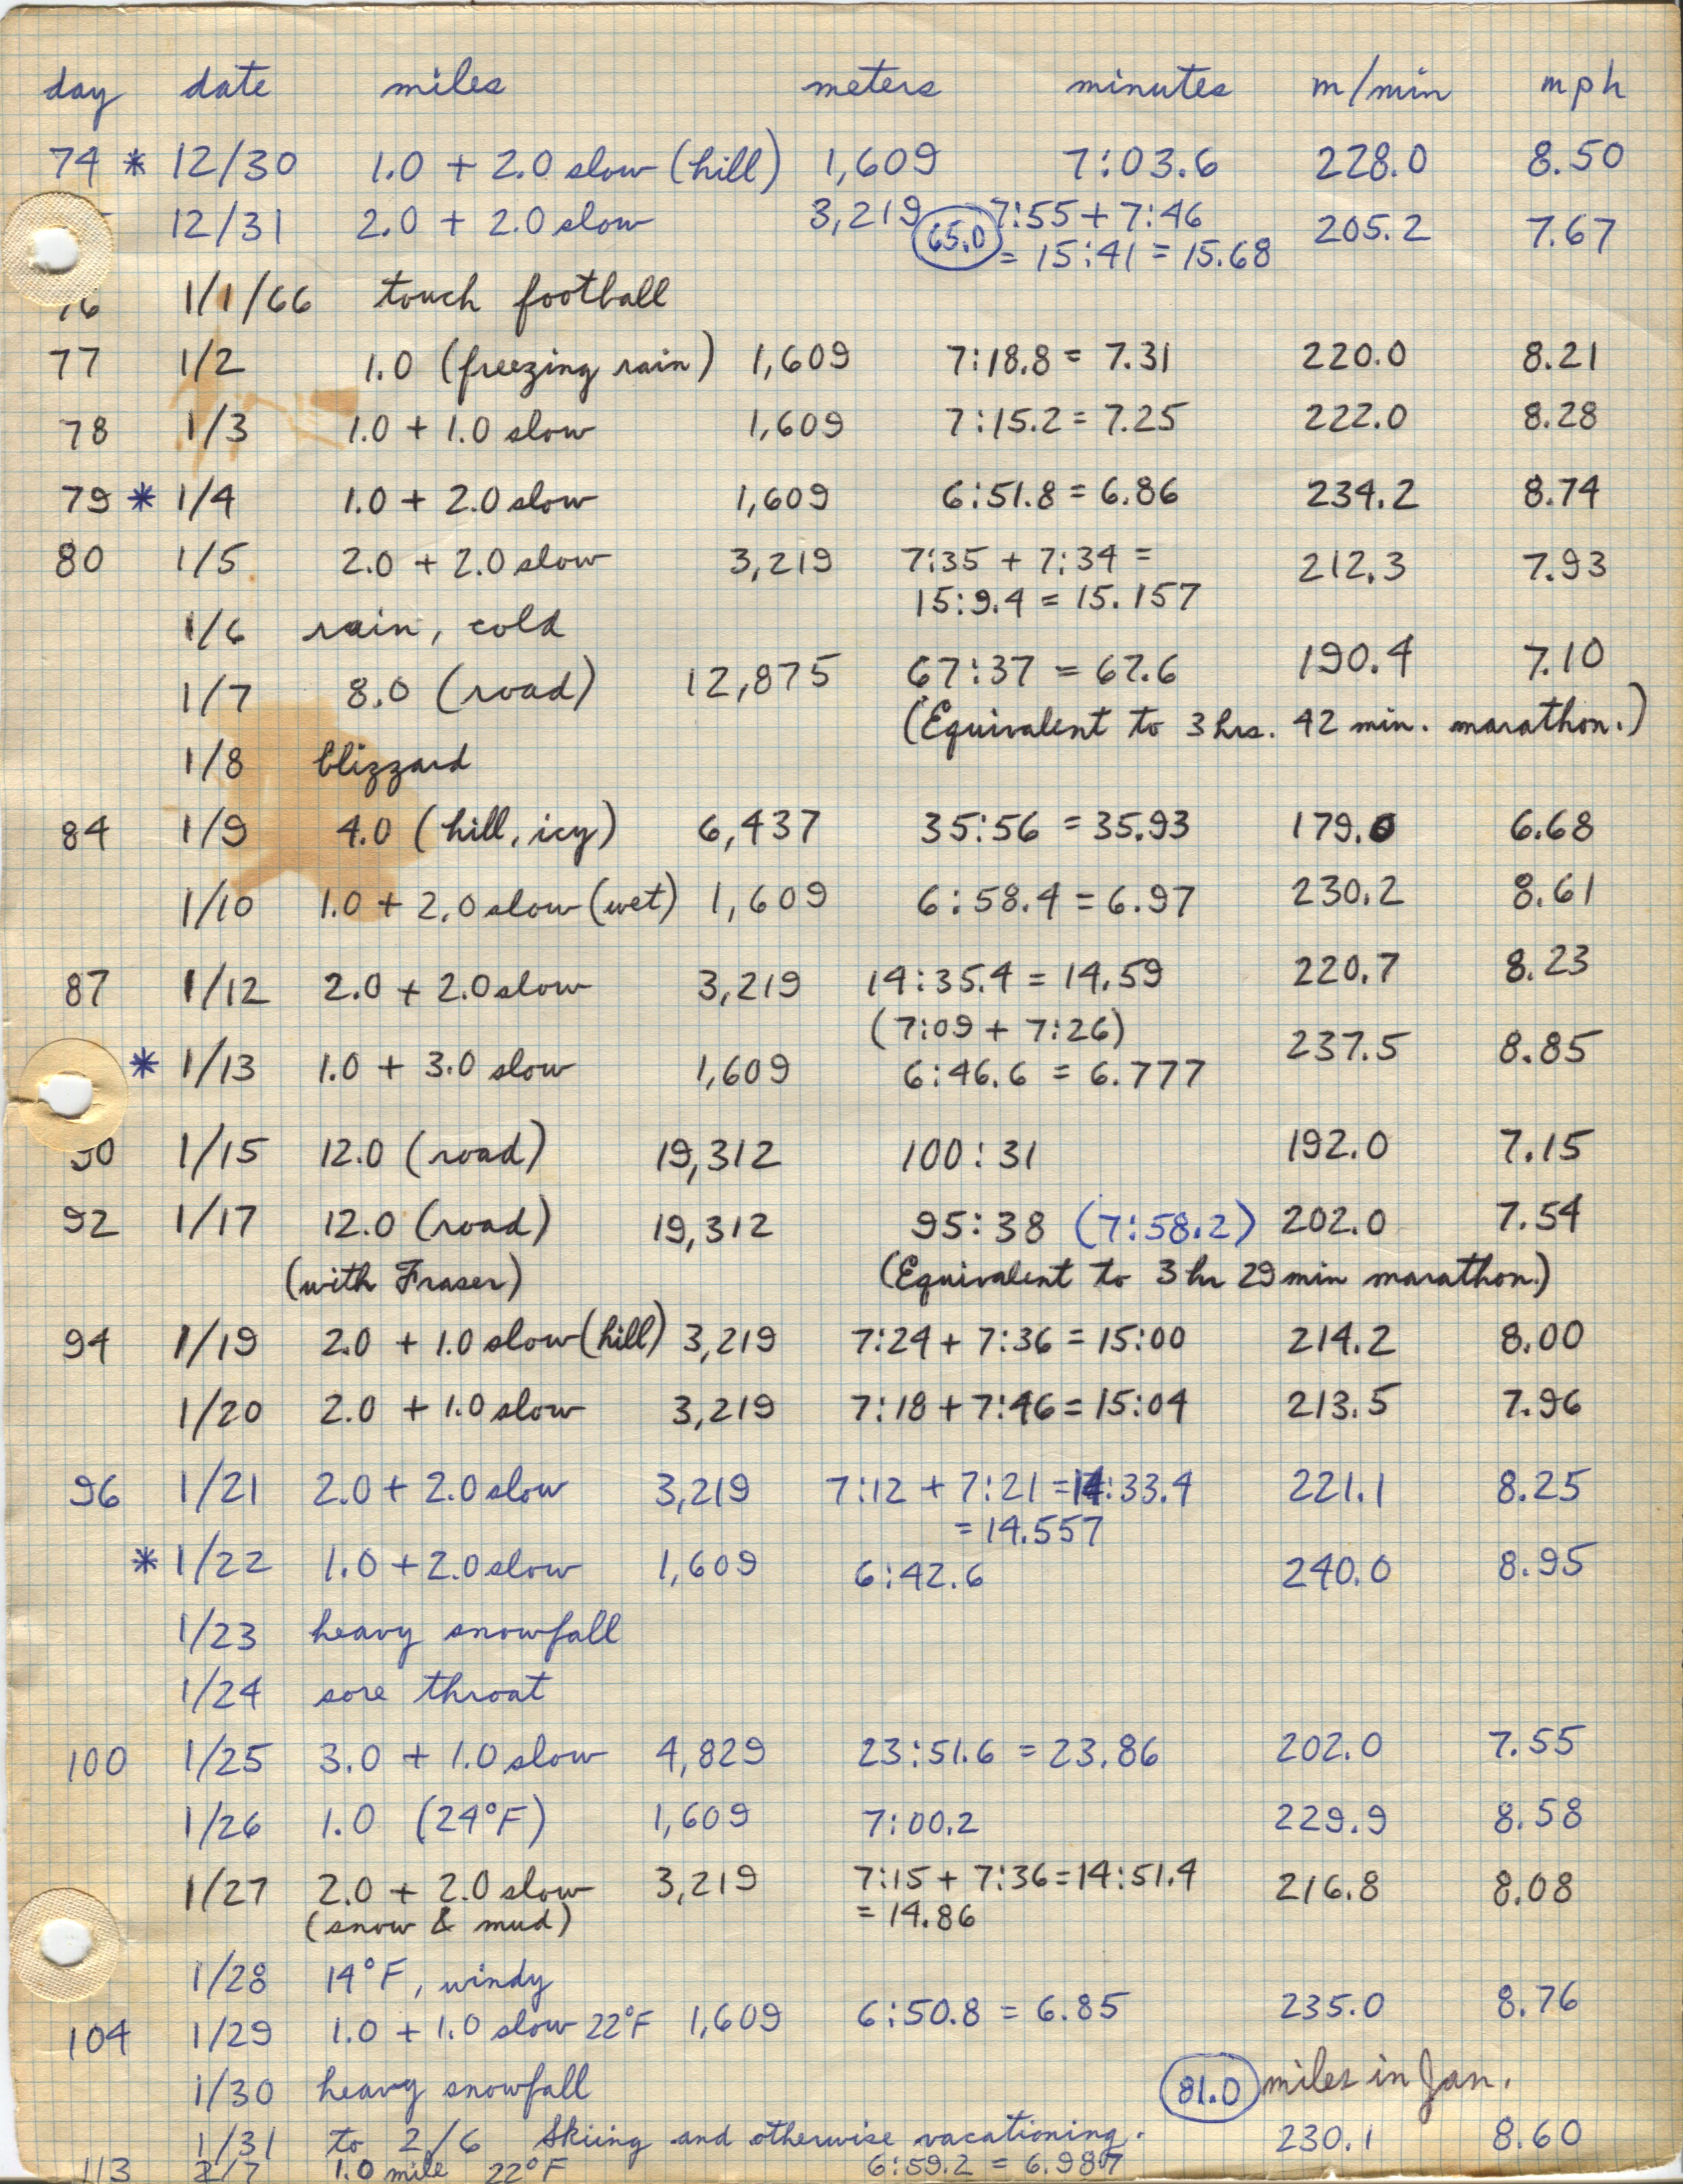 day date miles meters minutes m/min mph
74 * 12/30 1.0 + 2.0 slow (hill) 1,609 7:03.6 228.0 8.50
12/31 2.0 + 2.0 slow 3,219 65.0 7:55 + 7:46 205.2 7.67
= 15:41 = 15.68
76 1/1/66 touch football
77 1/2 1.0 (freezing rain) 1,609 7:18.8 = 7.31 220.0 8.21
78 1/3 1.0 + 1.0 slow 1,609 7:15.2 = 7.25 222.0 8.28
79 * 1/4 1.0 + 2.0 slow 1,609 6:51.8 = 6.86 234.2 8.74
80 1/5 2.0 + 2.0 slow 3,219 7:35 + 7:34 = 212.3 7.93
15:9.4 = 15.157
1/6 rain, cold
1/7 8.0 (road) 12,875 67:37 = 67.6 190.4 7.10
(Equivalent to 3 hrs. 42 min. marathon.)
1/8 blizzard
84 1/9 4.0 (hill, icy) 6,437 35:56 = 35.93 179.0 6.68
1/10 1.0 + 2.0 slow (wet) 1,609 6:58.4 = 6.97 230.2 8.61
87 1/12 2.0 + 2.0 slow 3,219 14:35.4 = 14.59 220.7 8.23
(7:09 + 7:26)
* 1/13 1.0 + 3.0 slow 1,609 6:46.6 = 6.777 237.5 8.85
90 1/15 12.0 (road) 19,312 100:31 192.0 7.15
92 1/17 12.0 (road) 19,312 95:38 (7:58.2) 202.0 7.54
(with Fraser) (Equivalent to 3 hr 29 min marathon.)
94 1/19 2.0 + 1.0 slow (hill) 3,219 7:24 + 7:36 = 15:00 214.2 8.00
1/20 2.0 + 1.0 slow 3,219 7:18 + 7:46 = 15:04 213.5 7.96
96 1/21 2.0 + 2.0 slow 3,219 7:12 + 7:21 = 14:33.4 221.1 8.25
= 14.557
* 1/22 1.0 + 2.0 slow 1,609 6:42.6 240.0 8.95
1/23 heavy snowfall
1/24 sore throat
100 1/25 3.0 + 1.0 slow 4,829 23:51.6 = 23.86 202.0 7.55
1/26 1.0 (24°F) 1,609 7:00.2 229.9 8.58
1/27 2.0 + 2.0 slow 3,219 7:15 + 7:36 = 14:51.4 216.8 8.08
(snow & mud) = 14.86
1/28 14°F, windy
104 1/29 1.0 + 1.0 slow 22°F 1,609 6:50.8 = 6.85 235.0 8.76
1/30 heavy snowfall 81.0 miles in Jan.
1/31 to 2/6 Skiing and otherwise vacationing.
113 2/7 1.0 mile 22°F 6:59.2 = 6.987 230.1 8.60